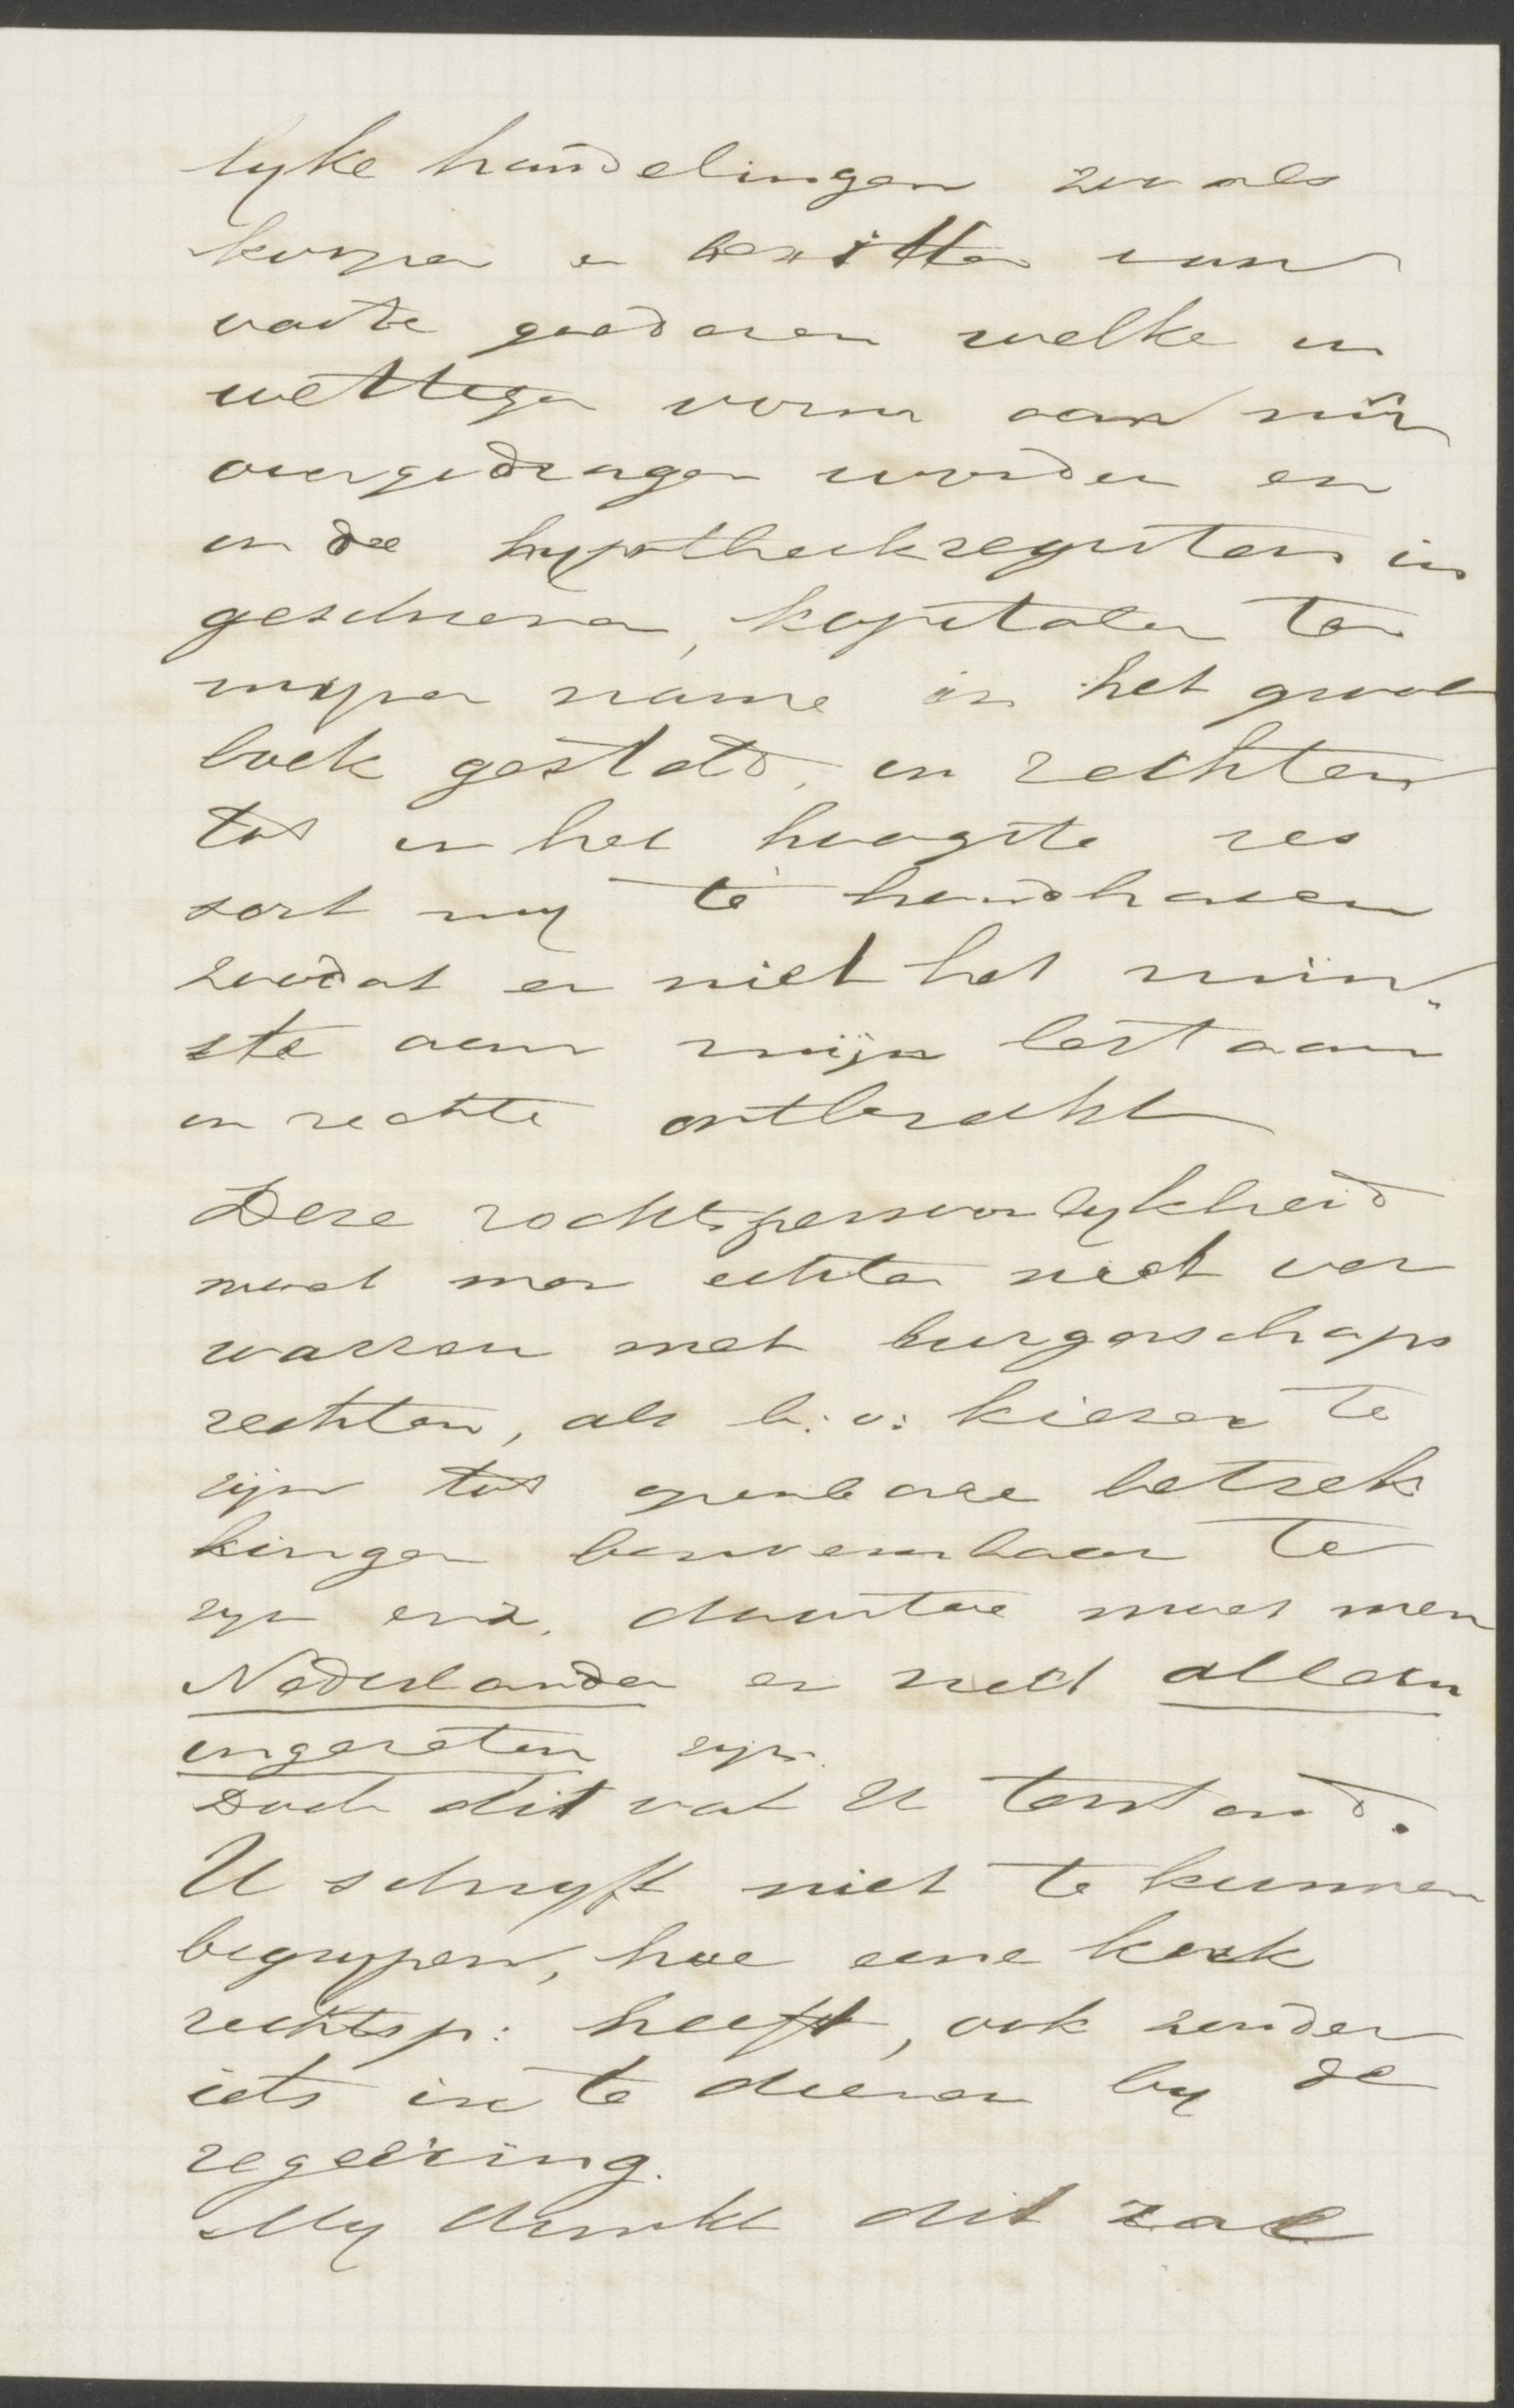 lyke handelingen zooals
koopen en bezitten van
vaste goederen welke in
wettigen vorm aan mij
overgedragen worden en
in de hypotheekregisters in
geschreven, kapitalen ten
mynen name in het groot
boek gesteld, en rechten
tot in het hoogste res
sort my te handhaven
zoodat er niet het min„
ste aan mijn bestaan
in rechte ontbreekt
Deze rechtspersoonlykheid
moet men echter niet ver
warren met burgerschaps
rechten, als b:v: kiezer te
zijn tot openbare betrek
kingen benoembaar te
zyn enz. daartoe moet men
Nederlander en niet alleen
ingezeten zyn.
Doch dit vat U terstond.
U schryft niet te kunnen
begrypen, hoe eene kerk
rechtsp: heeft, ook zonder
iets in te dienen by de
regeering.
My dunkt dit zal